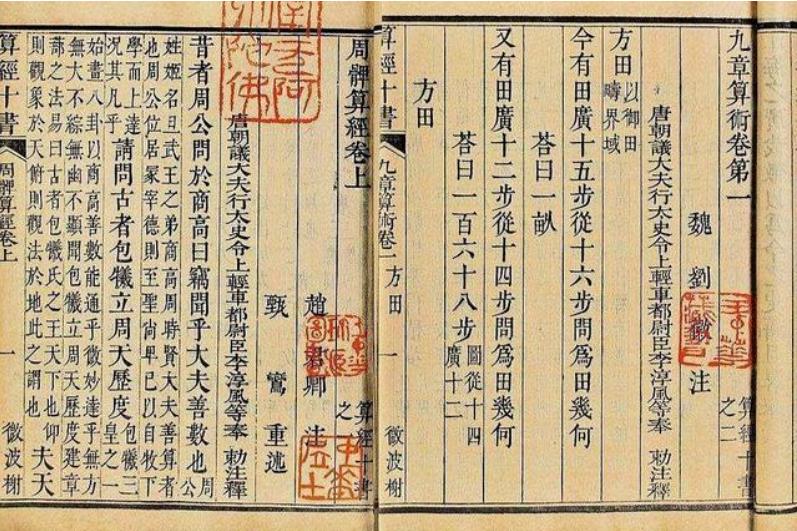 九章算術卷第一 算經十書之二
魏劉徽注
唐朝議大夫行太史令上輕車都尉臣李淳風等奉 勅注釋
方田以御田疇界域
今有田廣十五步從十六步問爲田幾何
荅曰一畝
又有田廣十二步從十四步問爲田幾何
荅曰一百六十八步圖從十四廣十二
方田
算經十書 九章算術卷一 方田 一 微波榭
周髀算經卷上 算經十書之
趙君卿注
甄鸞重述
唐朝議大夫行太史令上輕車都尉臣李淳風等奉 勅注釋
昔者周公問於商高曰竊聞乎大夫善數也周公
姓姬名旦武王之弟商高周時賢大夫善算者
也周公位居冢宰德則至聖尚卑己以自牧下
學而上達況其凡乎請問古者包犧立周天歷度包犧三皇之一
始畫八卦以商高善數能通乎微妙達乎無方
無大不綜無幽不顯聞包犧立周天歷度建章
蔀之法易曰古者包犧氏之王天下也仰
則觀象於天俯則觀法於地此之謂也夫天
算經十書 周髀算經卷上 一 微波榭